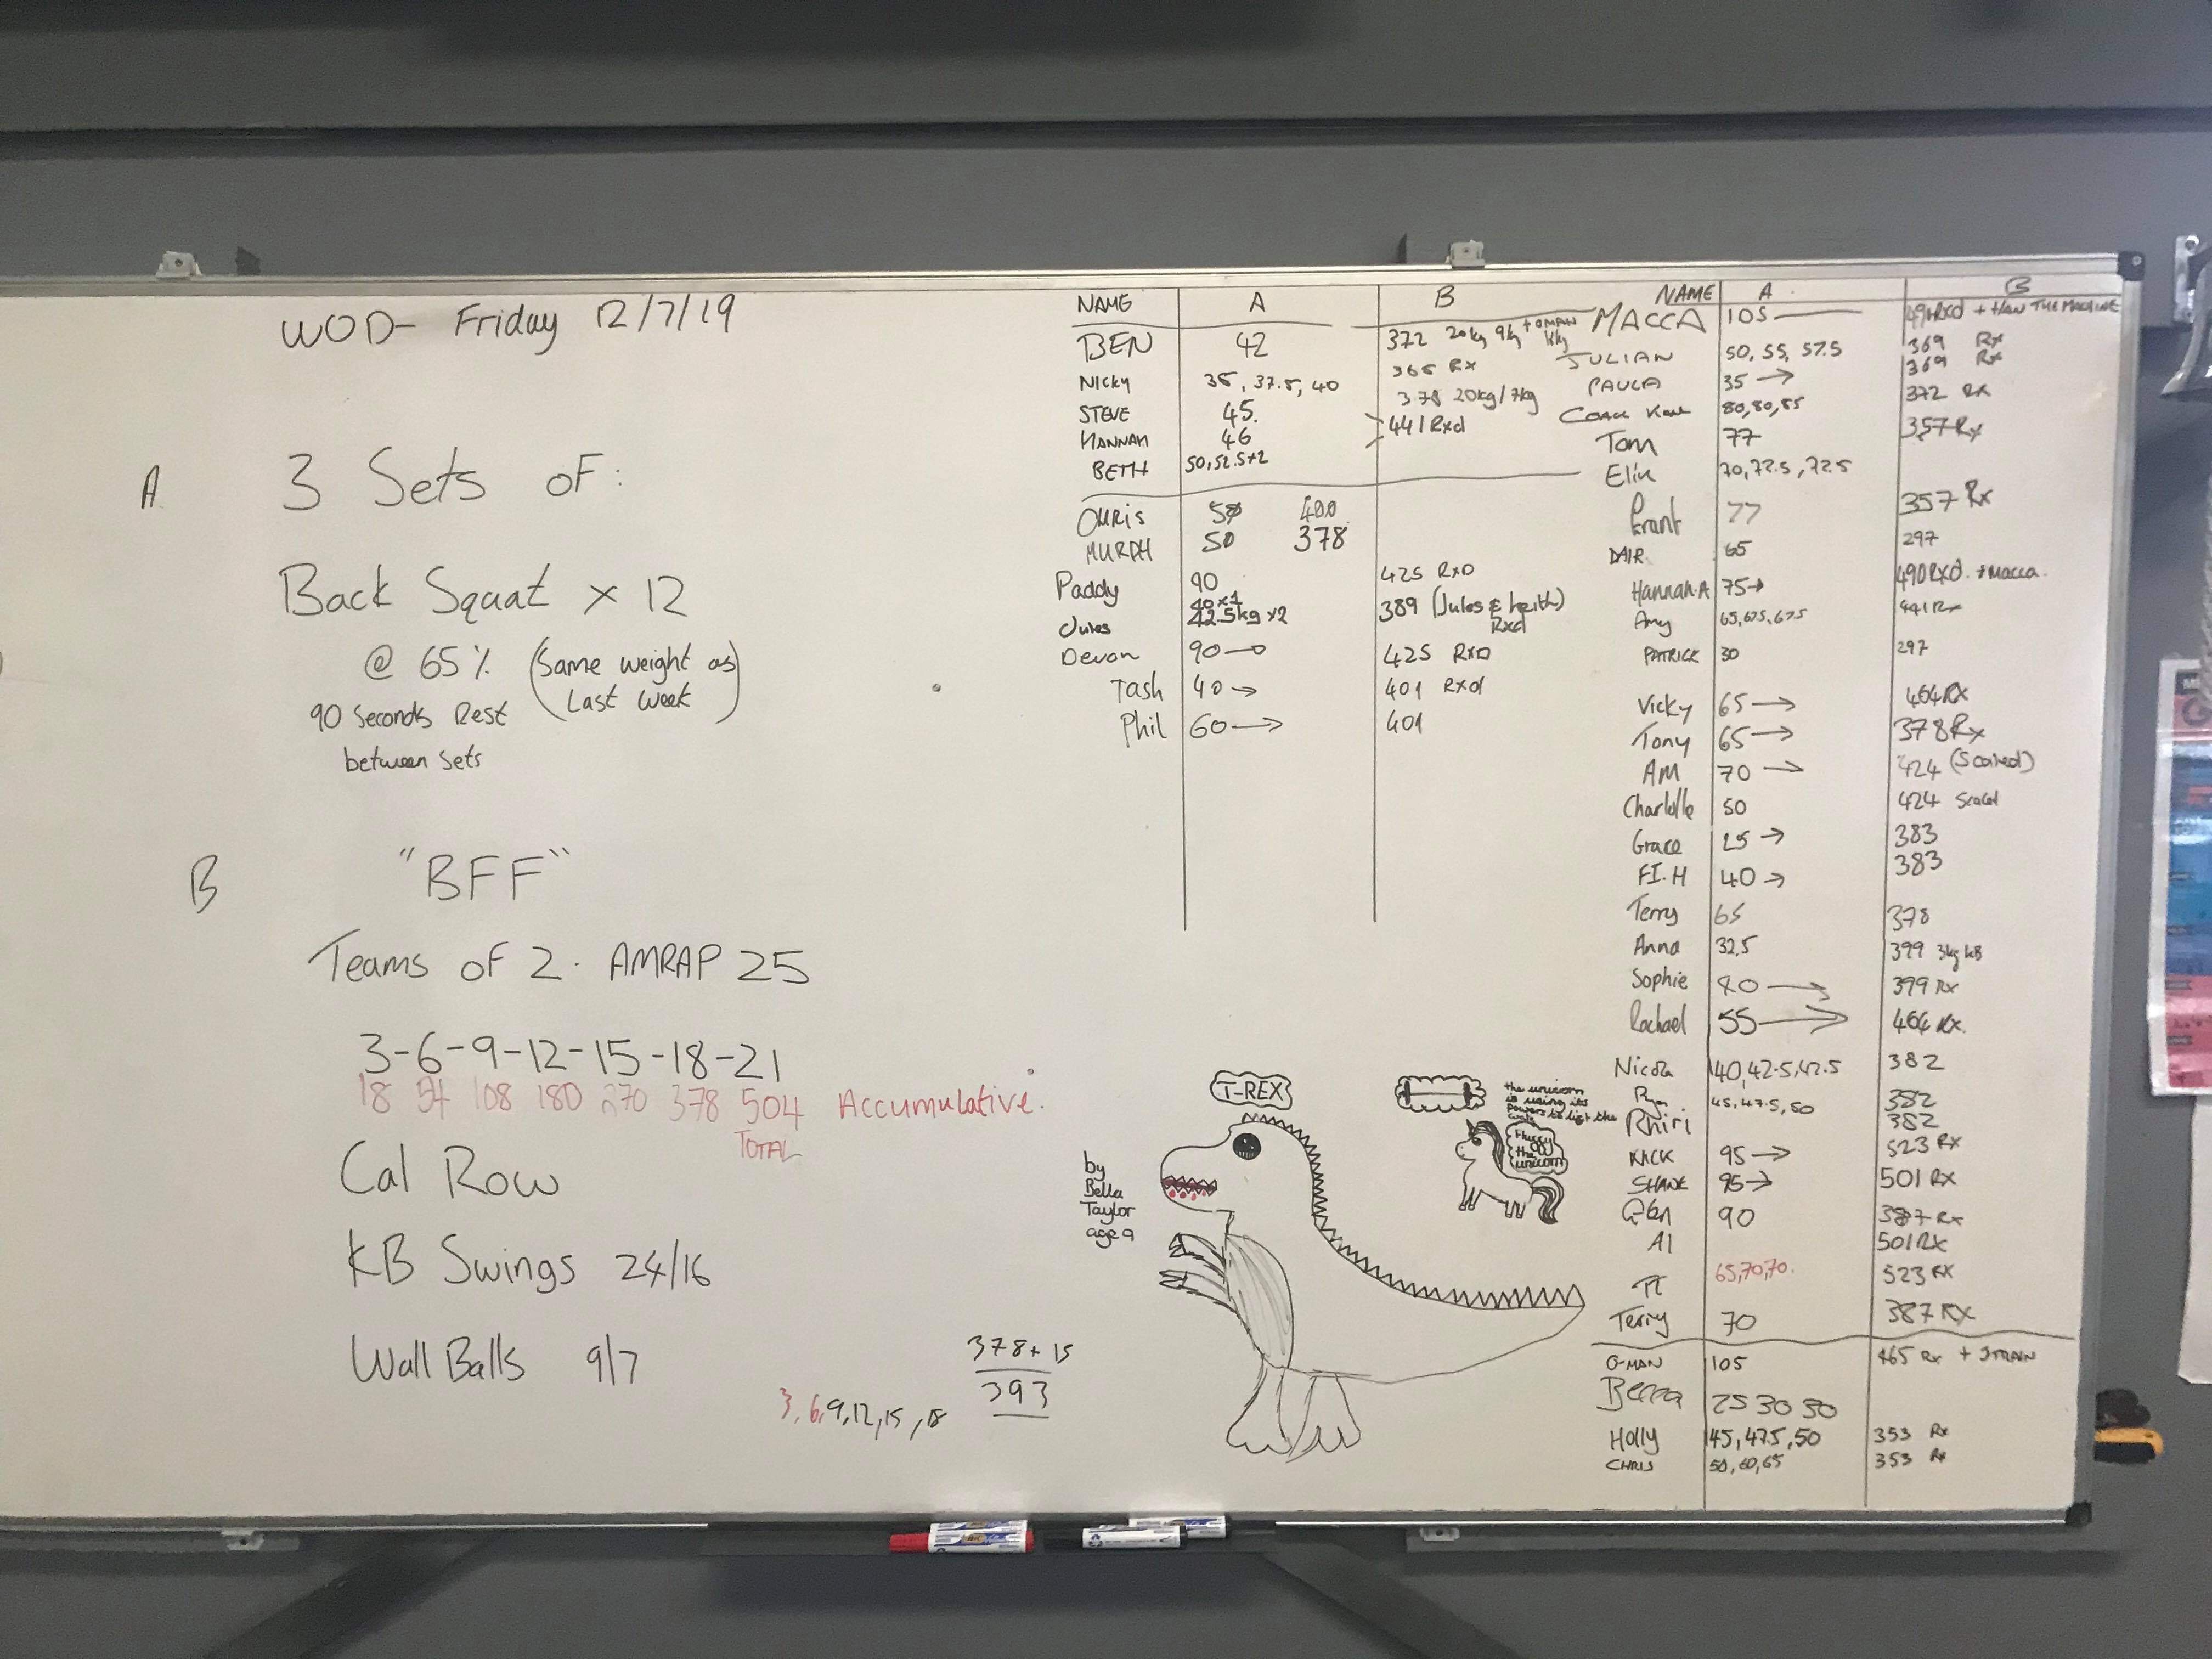 WOD- Friday 12/7/19
A
3 Sets of:
Back Squat x 12
@ 65% (Same weight as
Last Week)
90 Seconds Rest
between Sets
B
"BFF"
Teams of 2. AMRAP 25
3-6-9-12-15-18-21
18 54 108 180 270 378 504 Accumulative.
TOTAL
Cal Row
KB Swings 24/16
Wall Balls 9/7
378+15
393
3, 6, 9, 12, 15, 18
NAME A B
BEN 42 372 20kg 9kg
NICKY 35, 37.5, 40 365 Rx
STEVE 45. 378 20kg/7kg
HANNAH 46 441 Rxd
BETH 50, 52.5x2
CHRIS 50 400
MURPH 50 378
Paddy 90 425 RXD
Jules 40x1 42.5kg x2 389 (Jules & Keith) Rxd
Devon 90 → 425 RXD
Tash 40 → 401 Rxd
Phil 60 → 401
T-REX
by
Bella
Taylor
age 9
the unicorn
is using its
powers to lift the
Fluffy
the
unicorn
NAME A B
MACCA 105 + HAN THE MACHINE
JULIAN 50, 55, 57.5 369 Rx
PAULA 35 → 369 Rx
COACH 80, 80, 85 372 Rx
Tom 77 357 Rx
70, 72.5, 72.5
Grant 77 357 Rx
65 297
Hannah.A 75 → 490 RXD. + Macca.
Amy 65, 67.5, 67.5 441 Rx
PATRICK 30 297
Vicky 65 → 464 RX
Tony 65 → 378 Rx
AM 70 → 424 (Scaled)
Charlotte 50 424 Scaled
Grace 25 → 383
FI.H 40 → 383
Terry 65 378
Anna 32.5 399
Sophie 40 → 399 Rx
Rachael 55 → 464 Rx.
Nicola 40, 42.5, 42.5 382
45, 47.5, 50 382
Rhiri 382
95 → 523 Rx
SHANE 95 → 501 RX
90 387 Rx
Al 501 RX
65, 70, 70. 523 RX
Terry 70 387 RX
G-MAN 105 465 Rx +
Becca 25 30 30
Holly 45, 47.5, 50 353 Rx
CHRIS 50, 60, 65 353 Rx